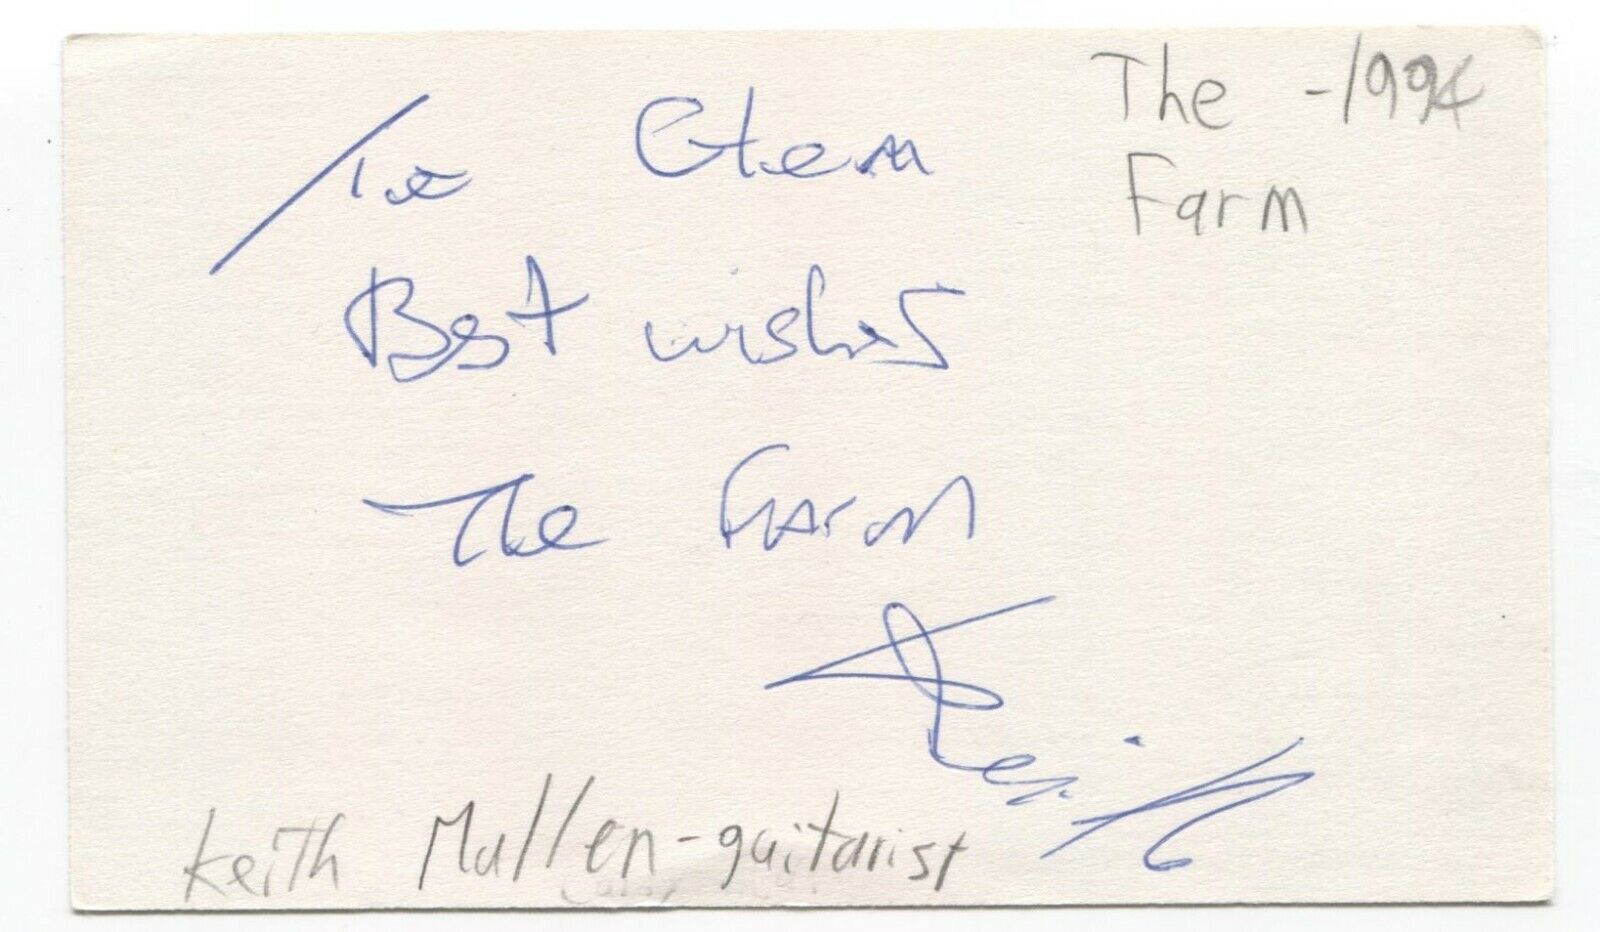 The -1994
Farm
To Glenn
Best wishes
The Farm
Keith
Keith Mullen-guitarist